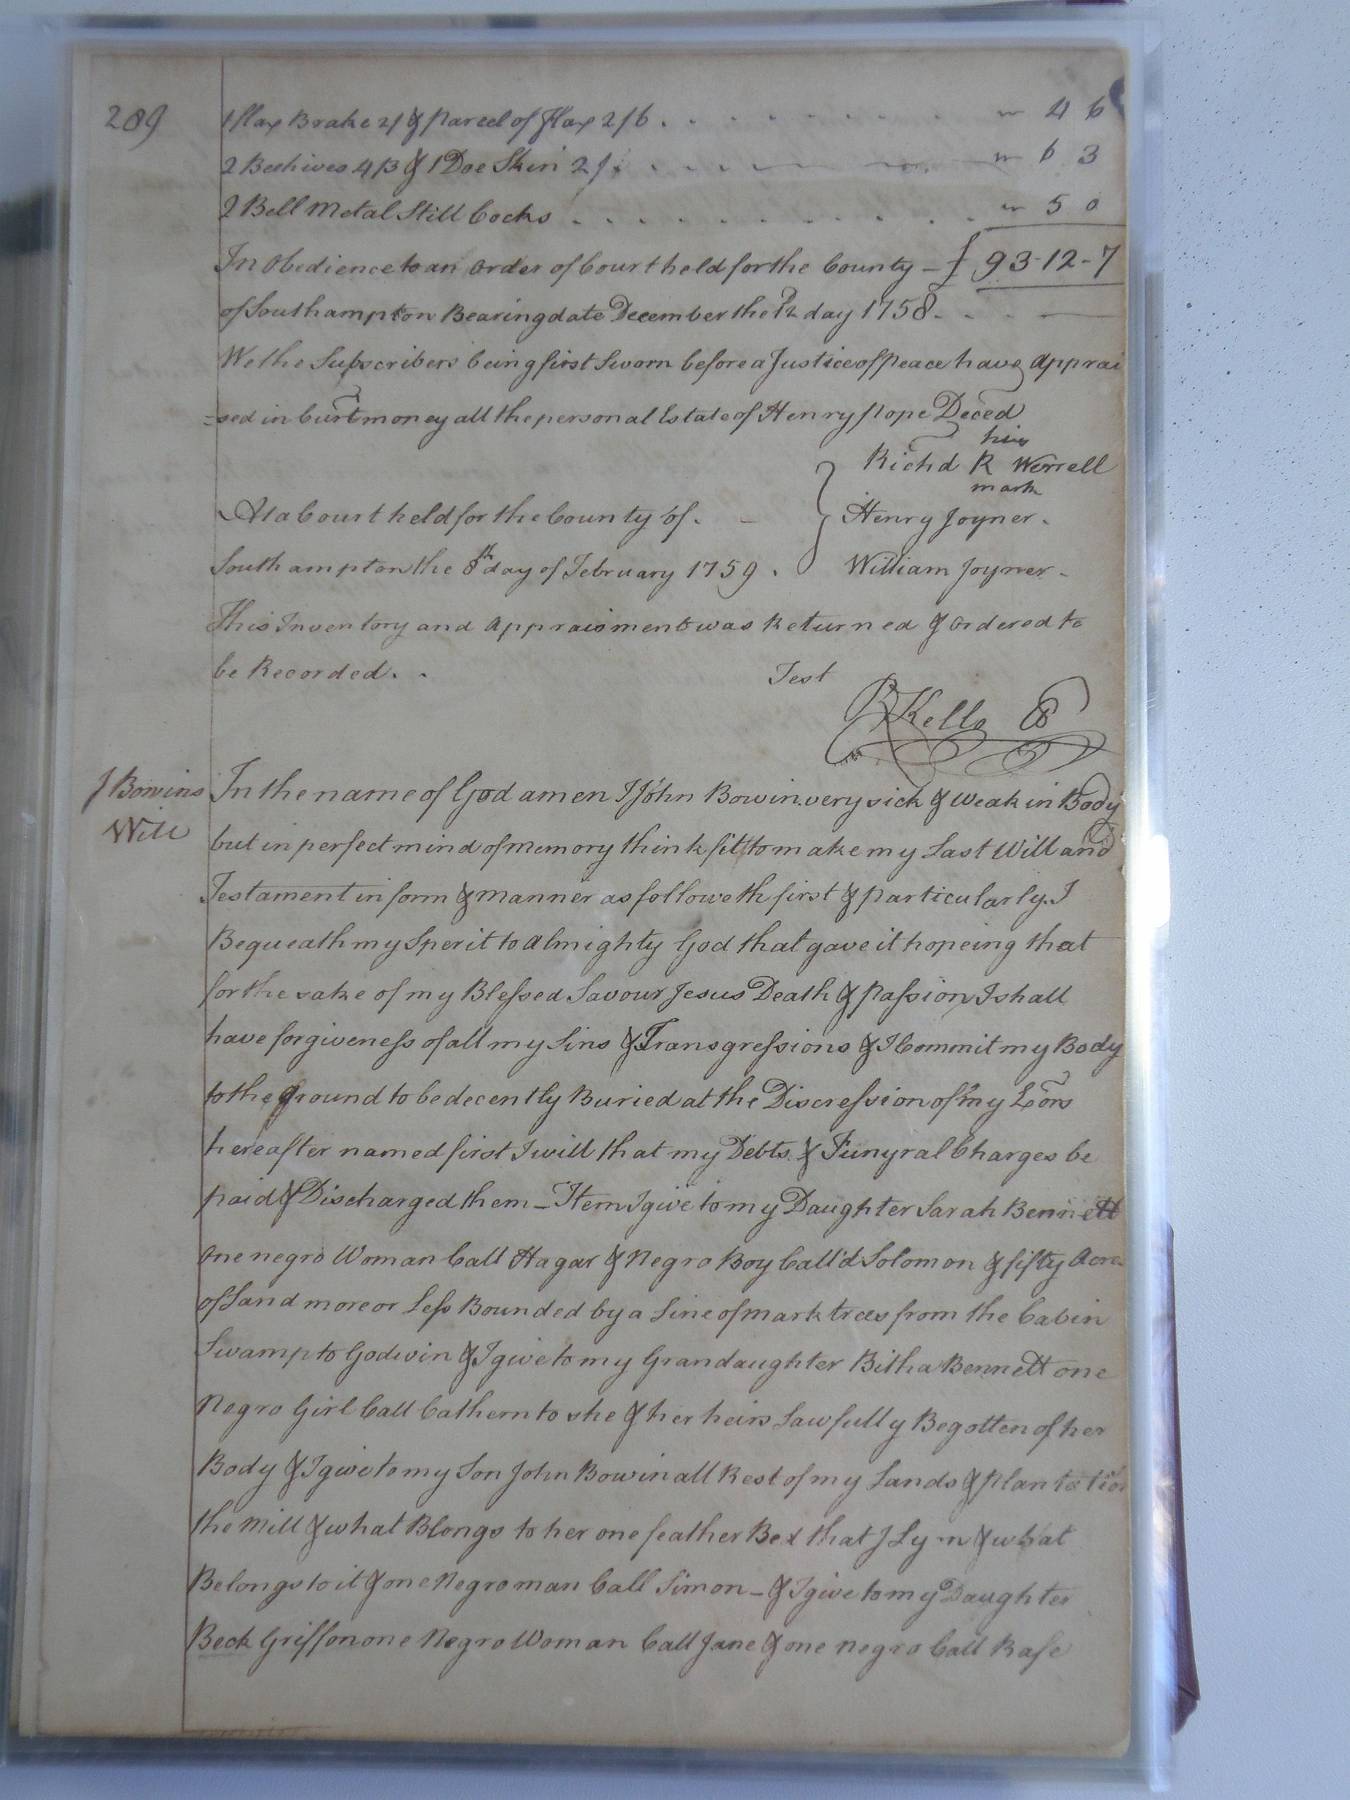 289
1 Flax Brake 2/ & parcel of Flax 2/6 . . . . . . . . . " 4 6
2 Beehives 4/3 & 1 Doe Skin 2/. . . . . . " 6 3
2 Bell Metal Still Cocks . . . . . . . . . . " 5 0
In Obedience to an Order of Court held for the County - } 93-12-7
of Southampton Bearing date December the 12 day 1758. . . -
We the Subscribers being first Sworn before a Justice of Peace have apprai
=sed in Curt money all the personal Estate of Henry Pope Deced
his
Richd R Worrell
mark
At a Court held for the County of. - } Henry Joyner.
Southampton the 8th day of February 1759. William Joyner-
This Inventory and Appraisment was Returned & Ordered to
be Recorded. . Test
R Kello CC
J Bowins
Will
In the name of God amen I John Bowin very sick & weak in Body
but in perfect mind of memory think fitt to make my Last Will and
Testament in form & manner as followeth first & particularly I
Bequeath my Sperit to Almighty God that gave it hopeing that
for the sake of my Blessed Savour Jesus Death & Passion I shall
have forgiveness of all my Sins & Transgressions & I Commit my Body
to the ground to be decently Buried at the Discression of my Exors
hereafter named first I will that my Debts & Funyral Charges be
paid & Discharged them - Item I give to my Daughter Sarah Bennett
One negro Woman Call Hagar & Negro Boy Call'd Solomon & fifty Acres
of Land more or Less Bounded by a Line of mark trees from the Cabin
Swamp to Godwin & I give to my Grandaughter Bitha Bennett one
Negro Girl Call Cathern to she & her heirs Lawfully Begotten of her
Body & I give to my Son John Bowin all Rest of my Lands & plantation
the Mill & what Blongs to her one feather Bed that I Ly on & what
Belongs to it & one Negro man Call Simon - & I give to my Daughter
Beck Griffon one Negro Woman Call Jane & one negro Call Rase